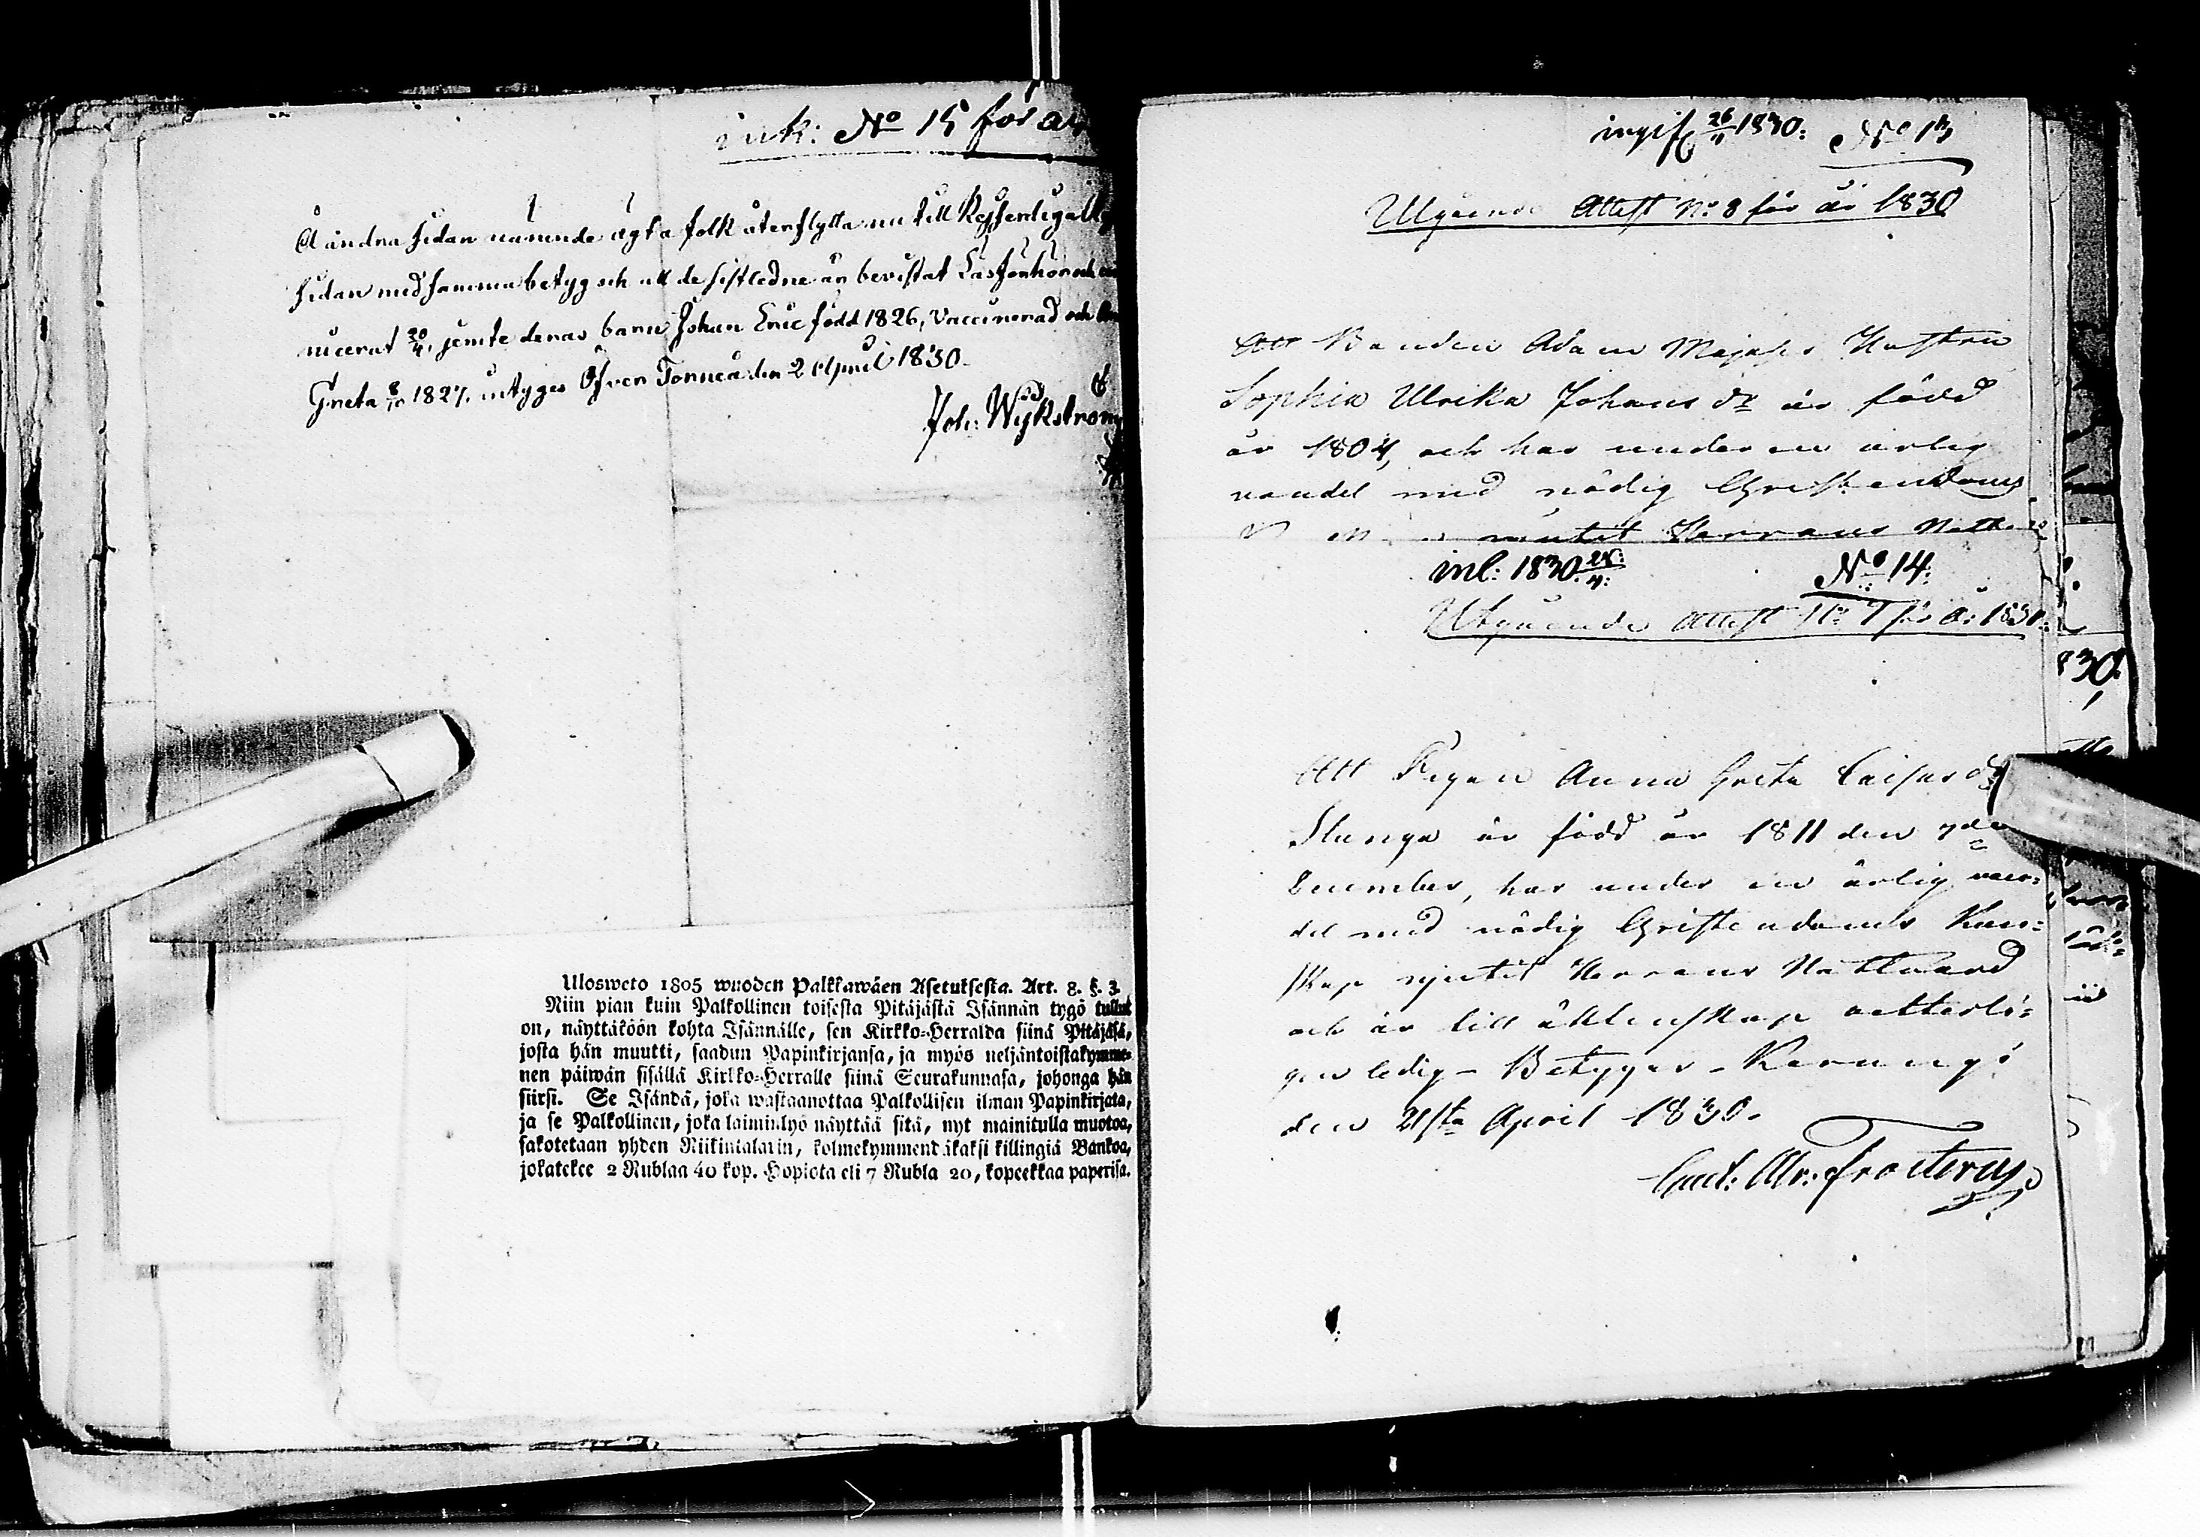 ink: No 15 för år
Å andra sidan nämnde ägta folk återflytta nu till
sidan med samma betyg och att de sistledne år bevistat Läsförhör och
nicerat 20/4, jemte deras barn Johan Eric född 1826, Vaccinerad och
Greta 8/10 1827. intyges Öfver Torneå den 2 April 1830.
Joh: Wykström
Ulosweto 1805 wuoden Palkkawäen Asetuksesta. Art. 8. §. 3.
Niin pian kuin Palkollinen toisesta Pitäjästä Isännän tygö tullut
on, näyttäköön kohta Isännälle, sen Kirkko-Herralda siinä Pitäjäsä,
josta hän muutti, saadun Papinkirjansa, ja myös neljäntoistakymme-
nen päiwän sisällä Kirkko-Herralle siinä Seurakunnasa, johonga hän
siirsi. Se Isändä, joka wastaanottaa Palkollisen ilman Papinkirjata,
ja se Palkollinen, joka laiminlyö näyttää sitä, nyt mainitulla muotoa,
sakotetaan yhden Riikintalarin, kolmekymmendäkaksi killingiä Bankoa,
jokatekee 2 Rublaa 40 kop. Hopiota eli 7 Rubla 20, kopeekkaa paperisa.
ingif 26/4 1830: No 13
Utgående Attest No 8 för år 1830
Att Bonden Adam Hustru
Sophia Ulrika Johans dr är född
år 1804, och har under en ärlig
vandel med nödig Christendoms
nutit Herrans
inl: 1830 24/4: No 14:
Utgående Attest No 7 för år 1830.
Att Pigan Anna Greta Caisas
Stunga är född år 1811 den 7de
December, har under en ärlig van-
del med nödig Christendoms Kun-
skap njutit Herrans Nattvard
och är till äktenskap vetterli-
gen ledig - Betygar - Karungi
den 21sta April 1830.
Carl: Ulr: Frosterus